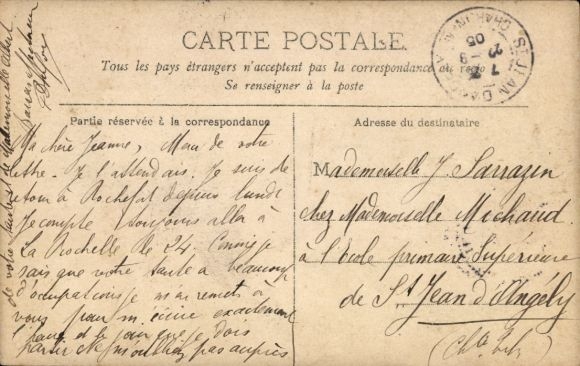 CARTE POSTALE
Tous les pays étrangers n'acceptent pas la correspondance au recto
Se renseigner à la poste
Partie réservée à la correspondance
Adresse du destinataire
Ma chère Jeanne, Merci de votre
lettre. Je l'attendais. Je suis de
retour à Rochefort depuis lundi
Je compte toujours aller à
La Rochelle le 24. Comme je
sais que votre tante a beaucoup
d'occupations je m'en remets à
vous pour m'écrire exactement
l'heure et le jour que je dois
partir Ne m'oubliez pas auprès
de votre tante et de Mademoiselle
Mademoiselle J. Sarrazin
chez Mademoiselle Michaud
à l'École primaire Supérieure
de St Jean d'Angély
(Chte Infre)
ST JEAN D'ANGELY
CHARENTE INF
7
23
05